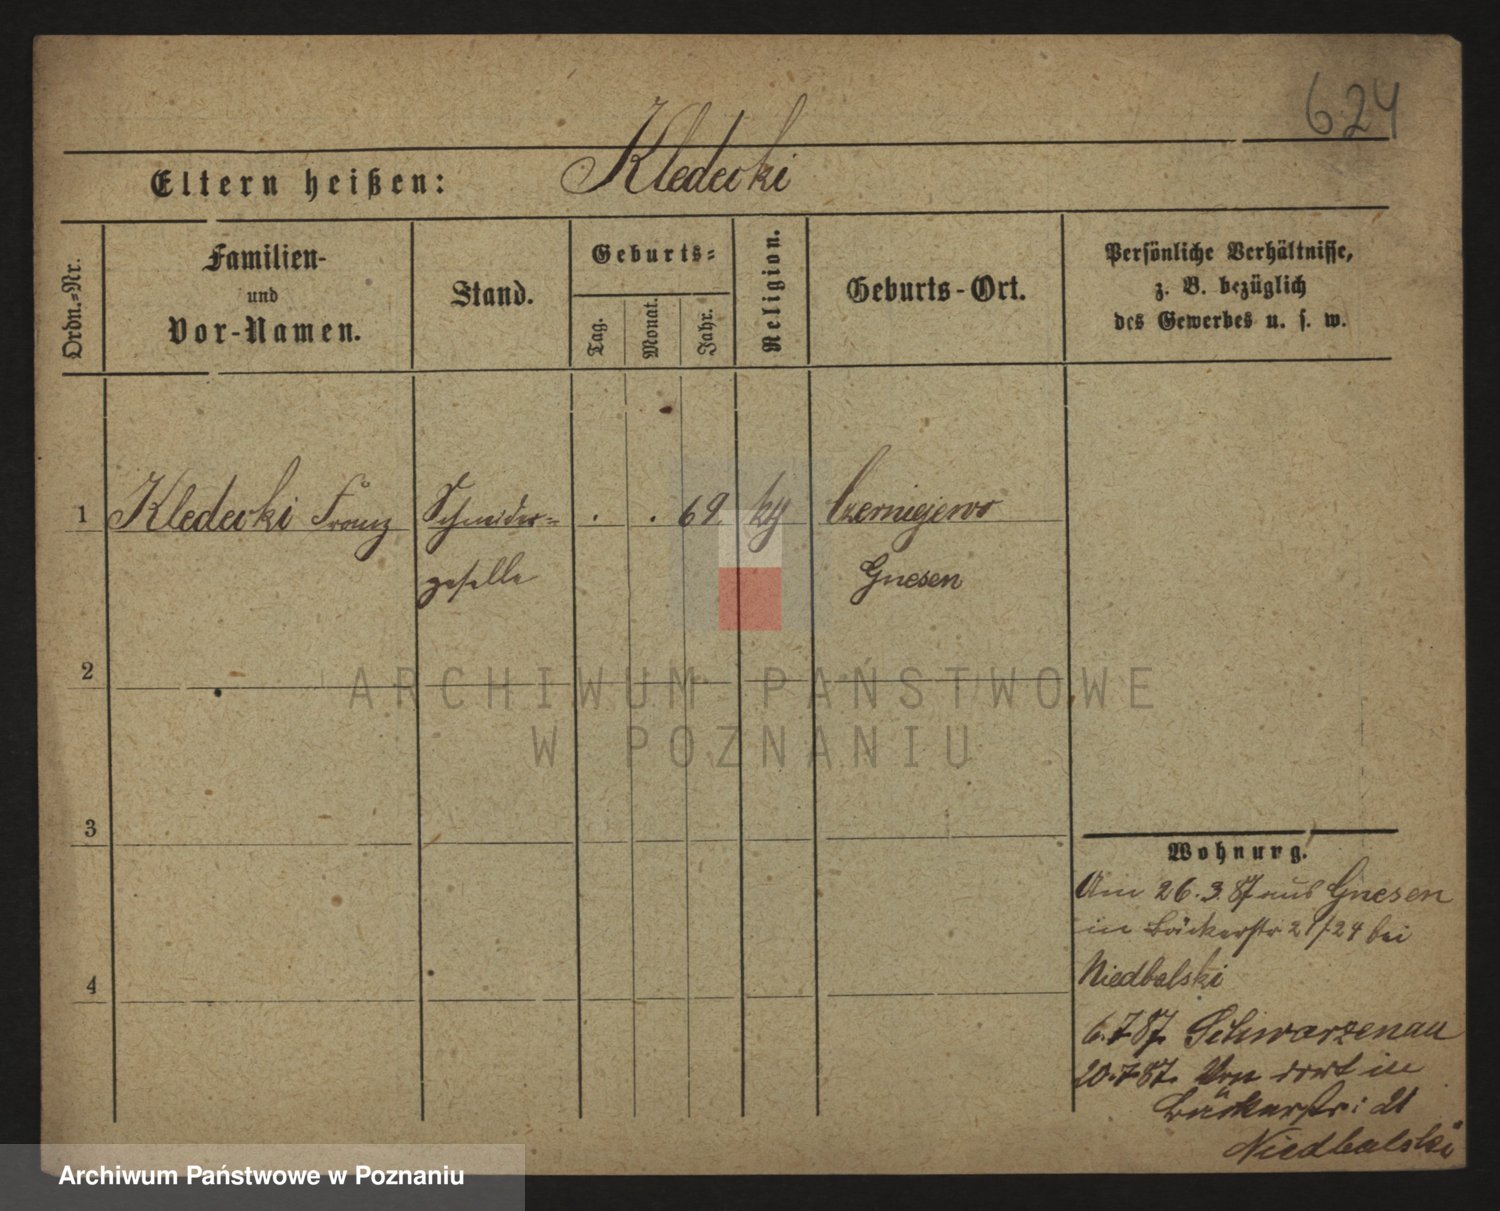 624
Eltern heißen: Kledecki
Ordn.=Nr.
Familien-
und
Vor-Namen.
Stand.
Geburts=
Tag.
Monat.
Jahr.
Religion.
Geburts-Ort.
Persönliche Verhältnisse,
z. B. bezüglich
des Gewerbes u. s. w.
1 Kledecki Franz Schneider= . . 69 Czerniejewo
geselle Gnesen
2
3
4
Wohnung.
Am 26.3.87 aus Gnesen
in Bäckerstr 21/24 bei
Niedbalski
6.7.87. Schwarzenau
20.7.87. Von dort in
Bäckerstr: 21
Niedbalski
ARCHIWUM PAŃSTWOWE
W POZNANIU
Archiwum Państwowe w Poznaniu